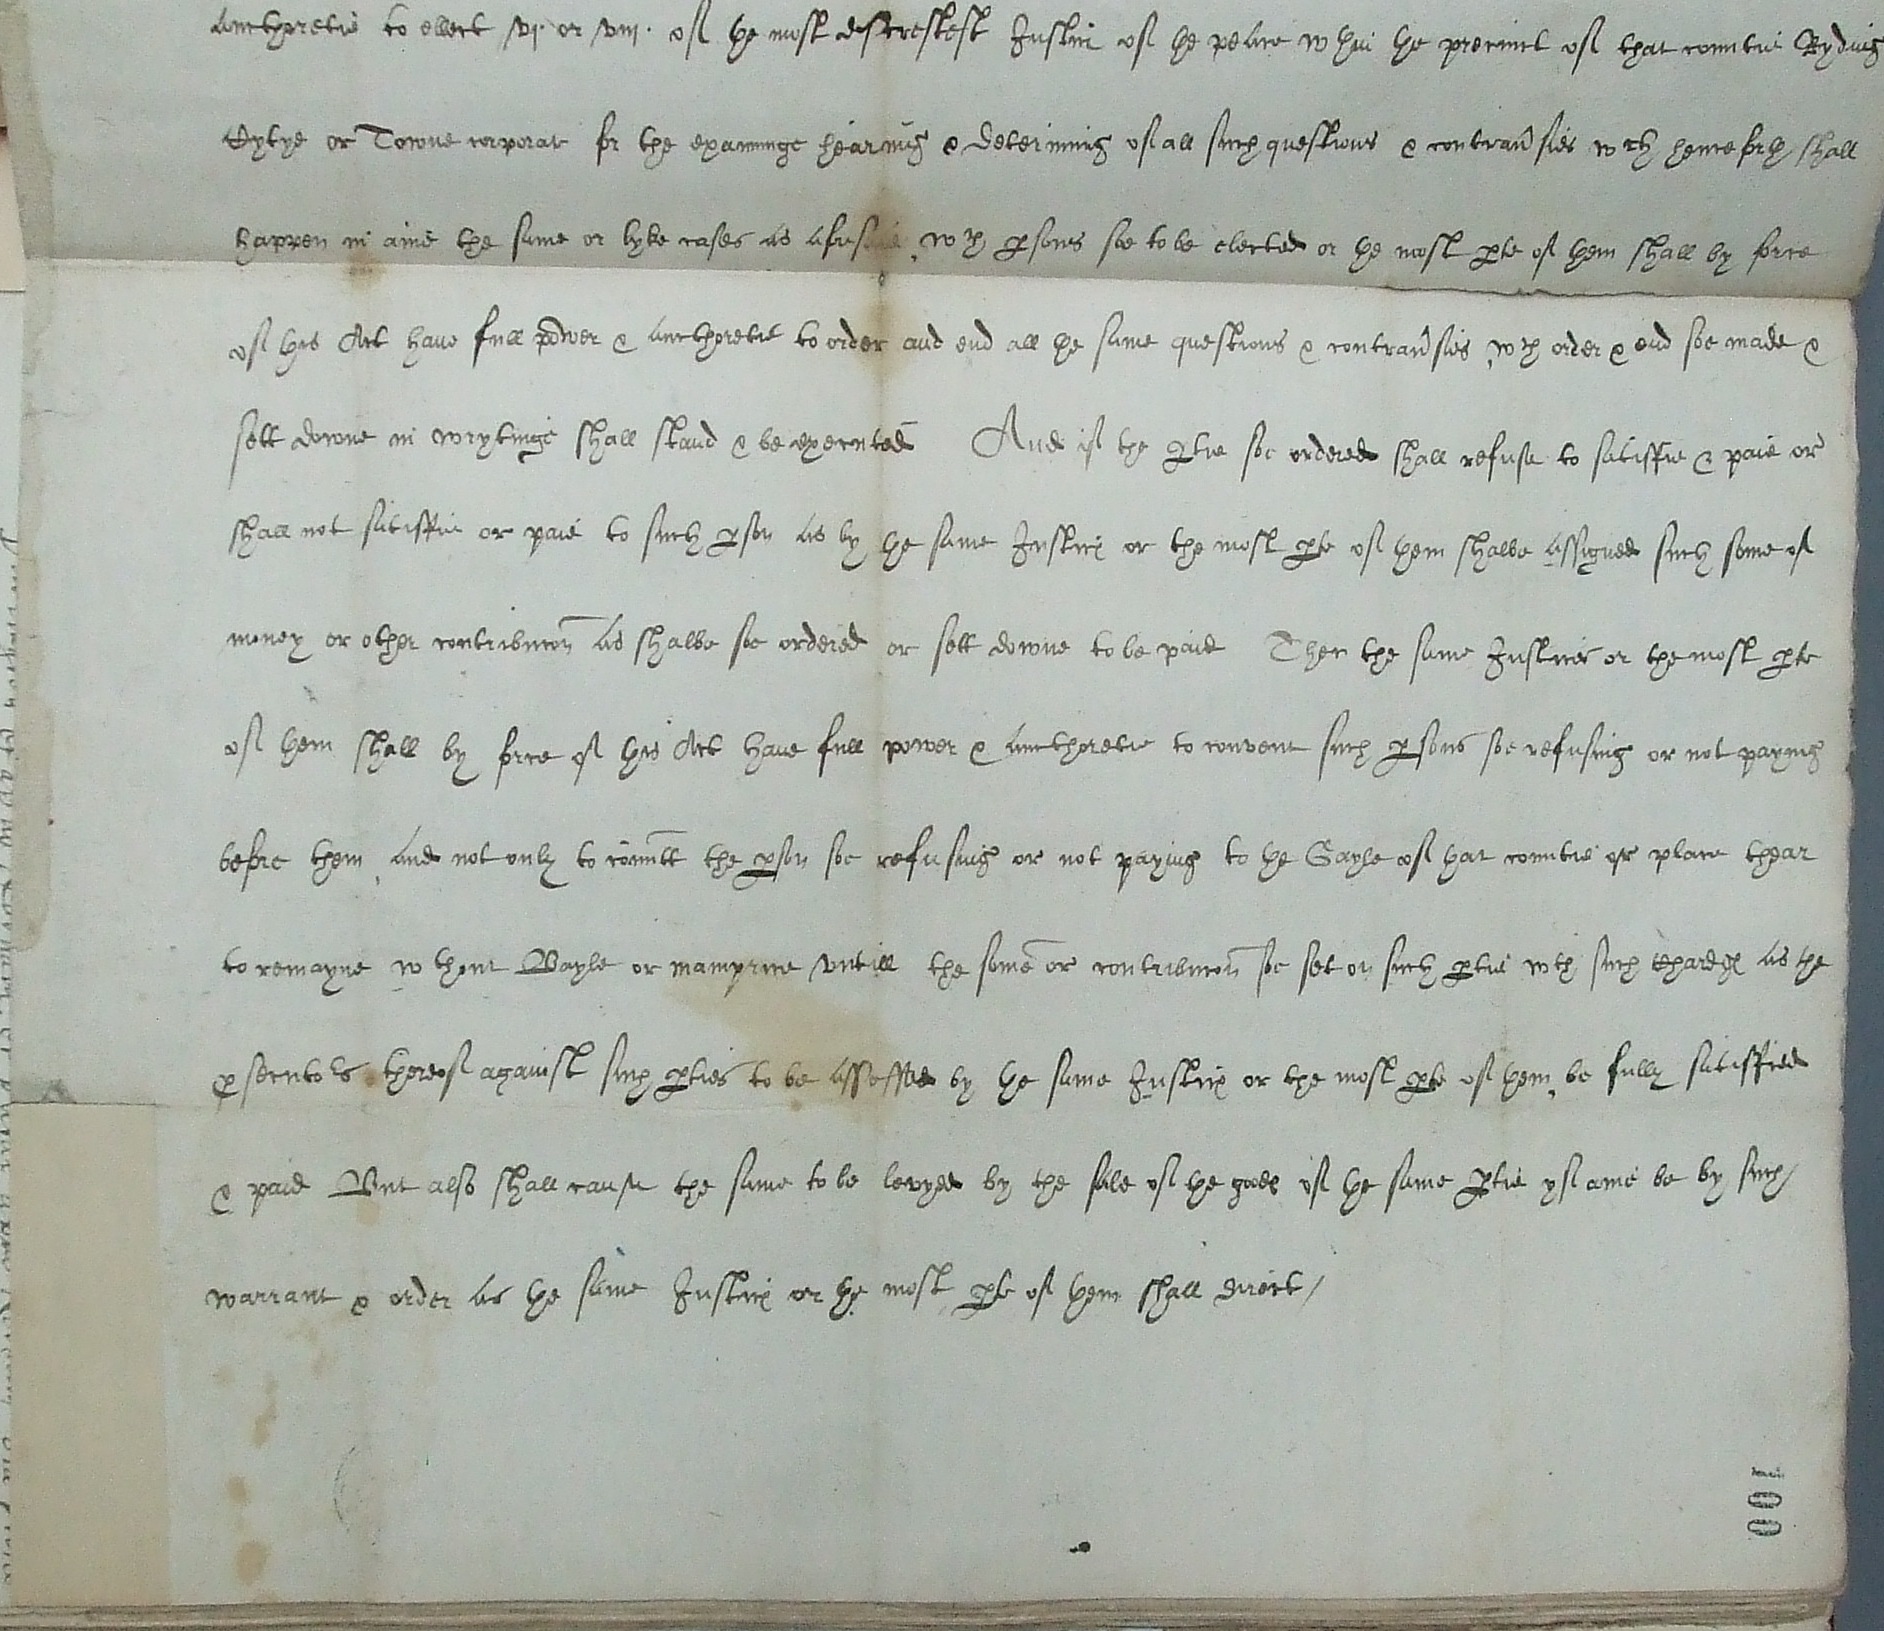 aucthoretie to ellect vj. or viij. of the most discrestest Justic of the peace wthin the precinct of that countie Ryding
Cytye or Towne corporat for the examinge hearing & determinig of all such questions & contrau'sies wch henceforth shall
happen in anie the same or lyke cases as aforesaid, wch psons soe to be elected or the most pte of them shall by force
of this Act have full power & aucthoretie to order and end all the same questions & contrau'sies, wch order & end soe made &
sett downe in wrytinge shall stand & be executed And if the ptie soe ordered shall refuse to satisffie & paie or
shall not satisffie or paie to such pson as by the same Justic or the most pte of them shalbe assigned such some of
money or other contribucon as shalbe soe ordered or sett downe to be paid Then the same Justices or the most pte
of them shall by force of this Act have full power & aucthoretie to convent such psons soe refusing or not payng
before them, and not only to comitt the pson soe refusing or not paying to the Gayle of that countie or place thear
to remayne wthout Bayle or mainprice vntill the some or contribucon soe set on such ptie wth such chardges as the
psecutors thereof against such pties to be assessed by the same Justic or the most pte of them, be fully satisffied
& paid But also shall cause the same to be levyed by the sale of the goods of the same ptie yf anie be by such
warrant & order as the same Justic or the most pte of them shall direct /
100